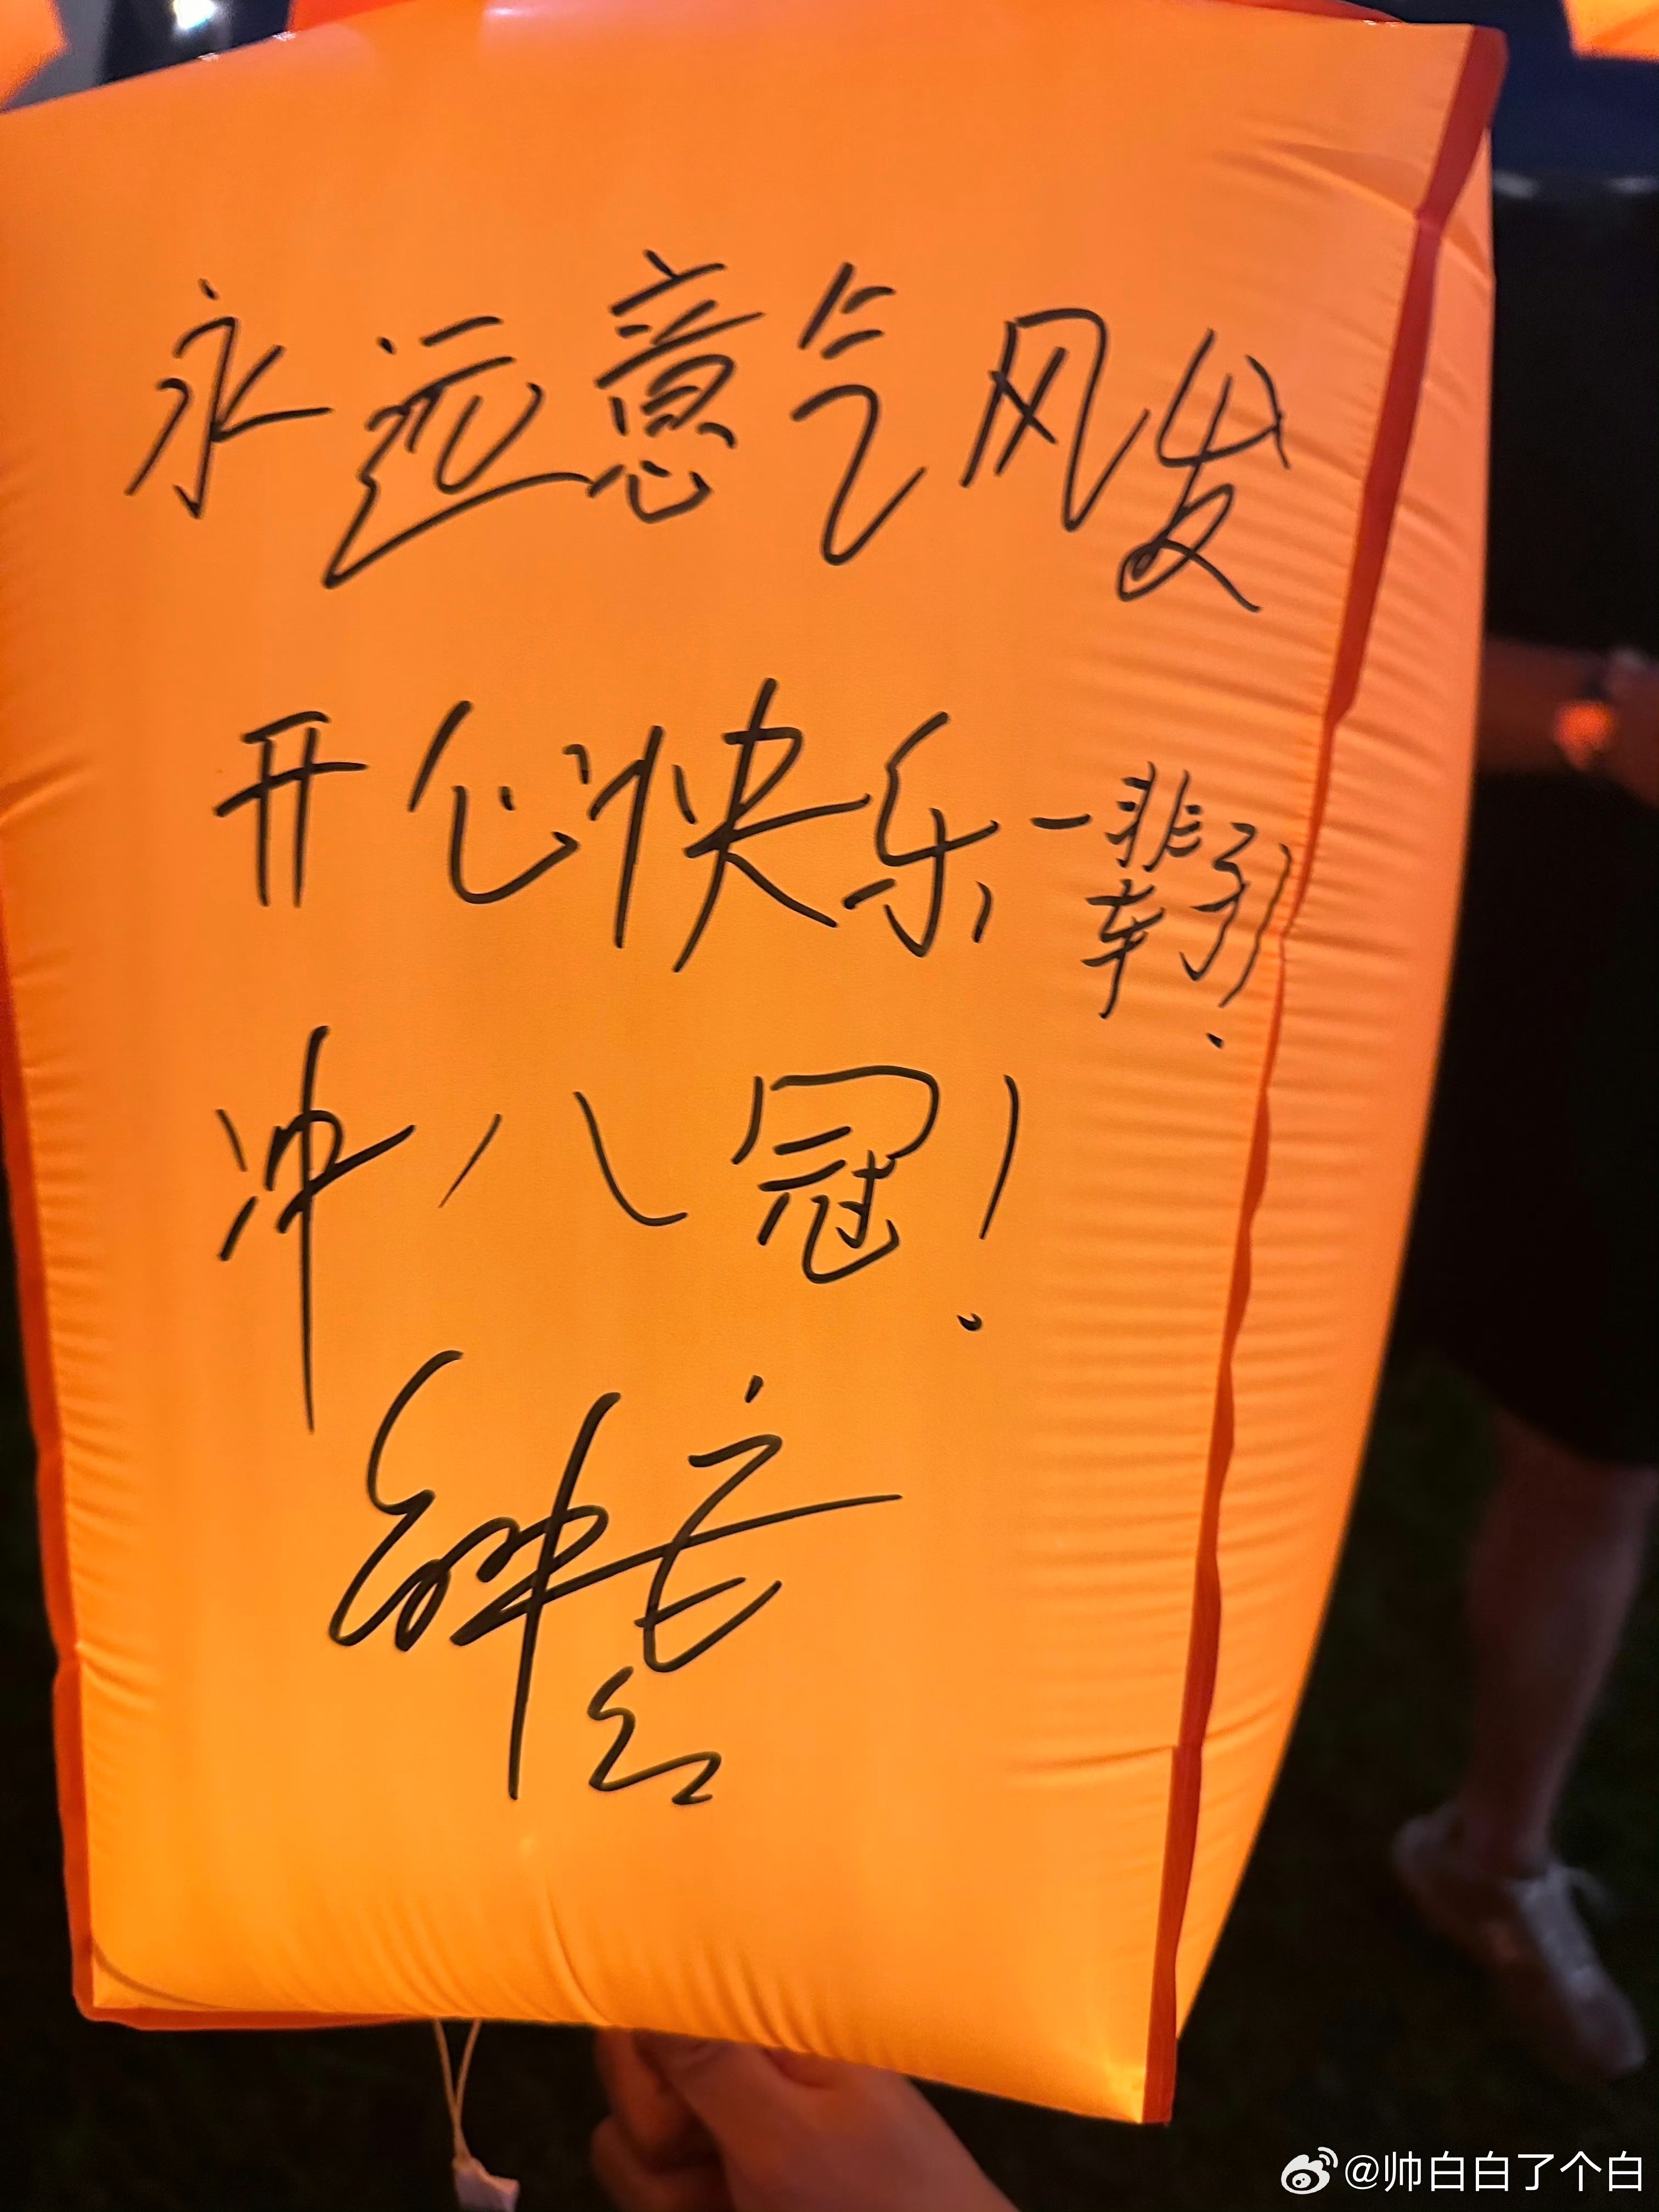 永远意气风发
开心快乐一辈子!
冲八冠!
@帅白白了个白